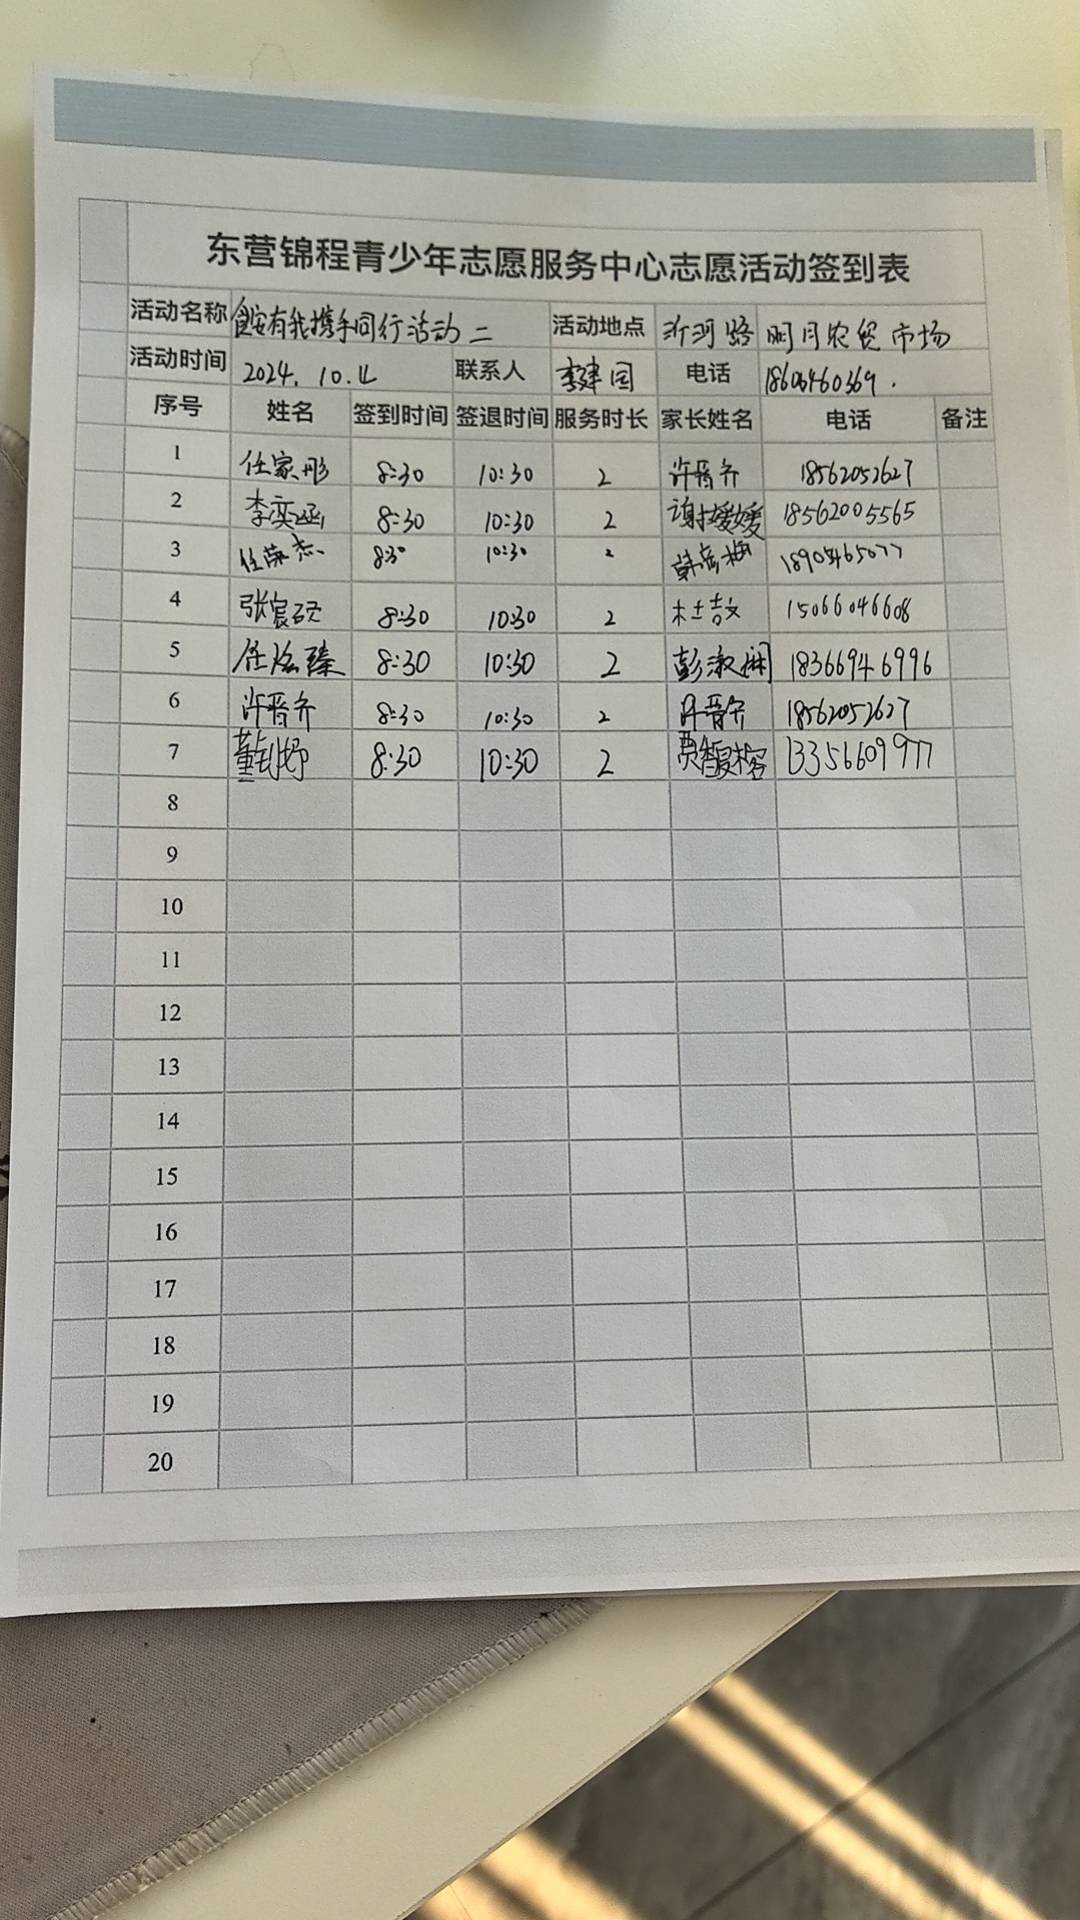 东营锦程青少年志愿服务中心志愿活动签到表
活动名称 食安有我携手同行活动二 活动地点 沂河路 明月农贸市场
活动时间 2024.10.4 联系人 李建国 电话 18603460369.
序号 姓名 签到时间 签退时间 服务时长 家长姓名 电话 备注
1 任家彤 8:30 10:30 2 许晋齐 18562052627
2 李奕涵 8:30 10:30 2 谢媛媛 18562005565
3 8:30 10:30 2 18905465077
4 张宸硕 8:30 10:30 2 杜喆文 15066046608
5 8:30 10:30 2 彭淑娴 18366946996
6 许晋齐 8:30 10:30 2 许晋齐 18562052627
7 8:30 10:30 2 13356609977
8
9
10
11
12
13
14
15
16
17
18
19
20